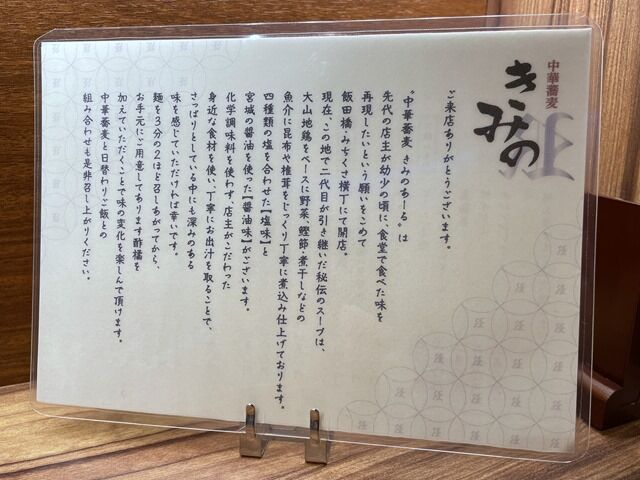 中華蕎麦
きみの
ご来店ありがとうございます。
"中華蕎麦 きみのあーる"は
先代の店主が幼少の頃に、食堂で食べた味を
再現したいという願いをこめて
飯田橋・みちくさ横丁にて開店。
現在、この地で二代目が引き継いだ秘伝のスープは、
大山地鶏をベースに野菜、鰹節・煮干しなどの
魚介に昆布や椎茸をじっくり丁寧に煮込み仕上げております。
四種類の塩を合わせた【塩味】と
宮城の醤油を使った【醤油味】がございます。
化学調味料を使わず、店主がこだわった
身近な食材を使い、丁寧にお出汁を取ることで、
さっぱりとしている中にも深みのある
味を感じていただければ幸いです。
麺を3分の2ほど召しあがってから、
お手元にご用意してあります酢橘を
加えていただくことで味の変化を楽しんで頂けます。
中華蕎麦と日替わりご飯との
組み合わせも是非召し上がりください。